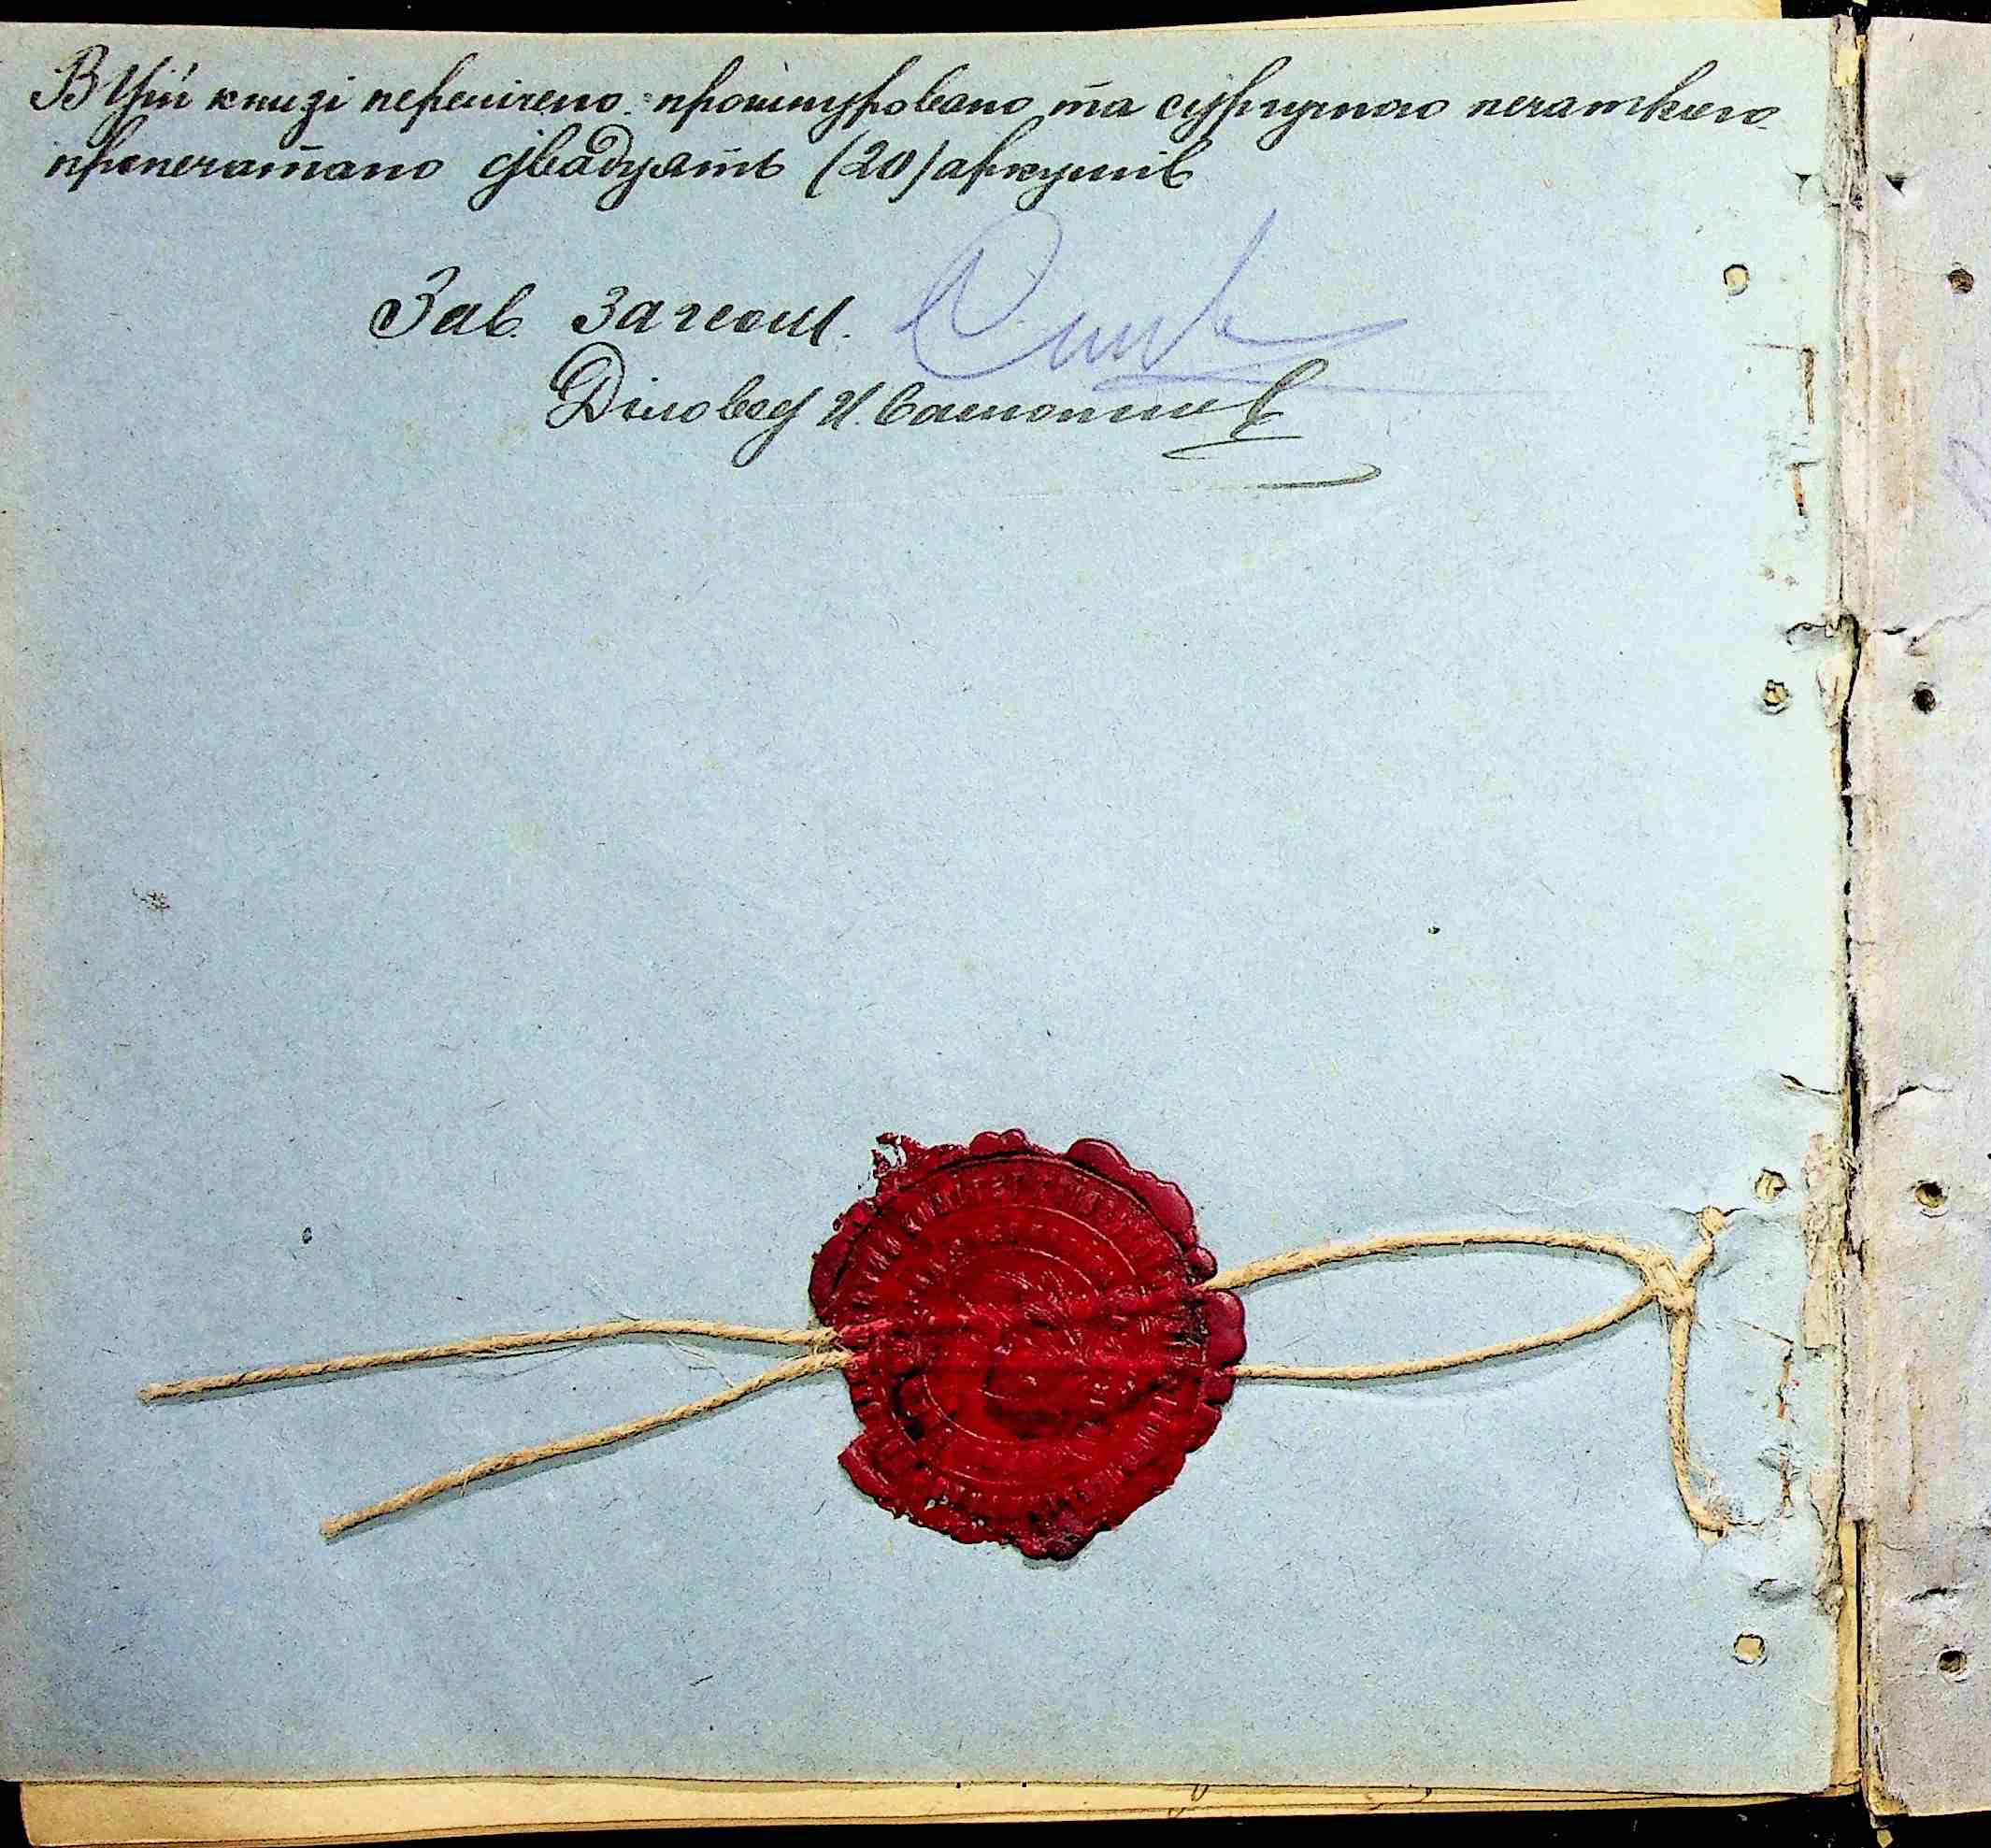 В цій книзі перелічено прошнуровано та сургучною печаткою
пропечатано двадцять (20) аркушів
Зав. Загсом.
Діловод